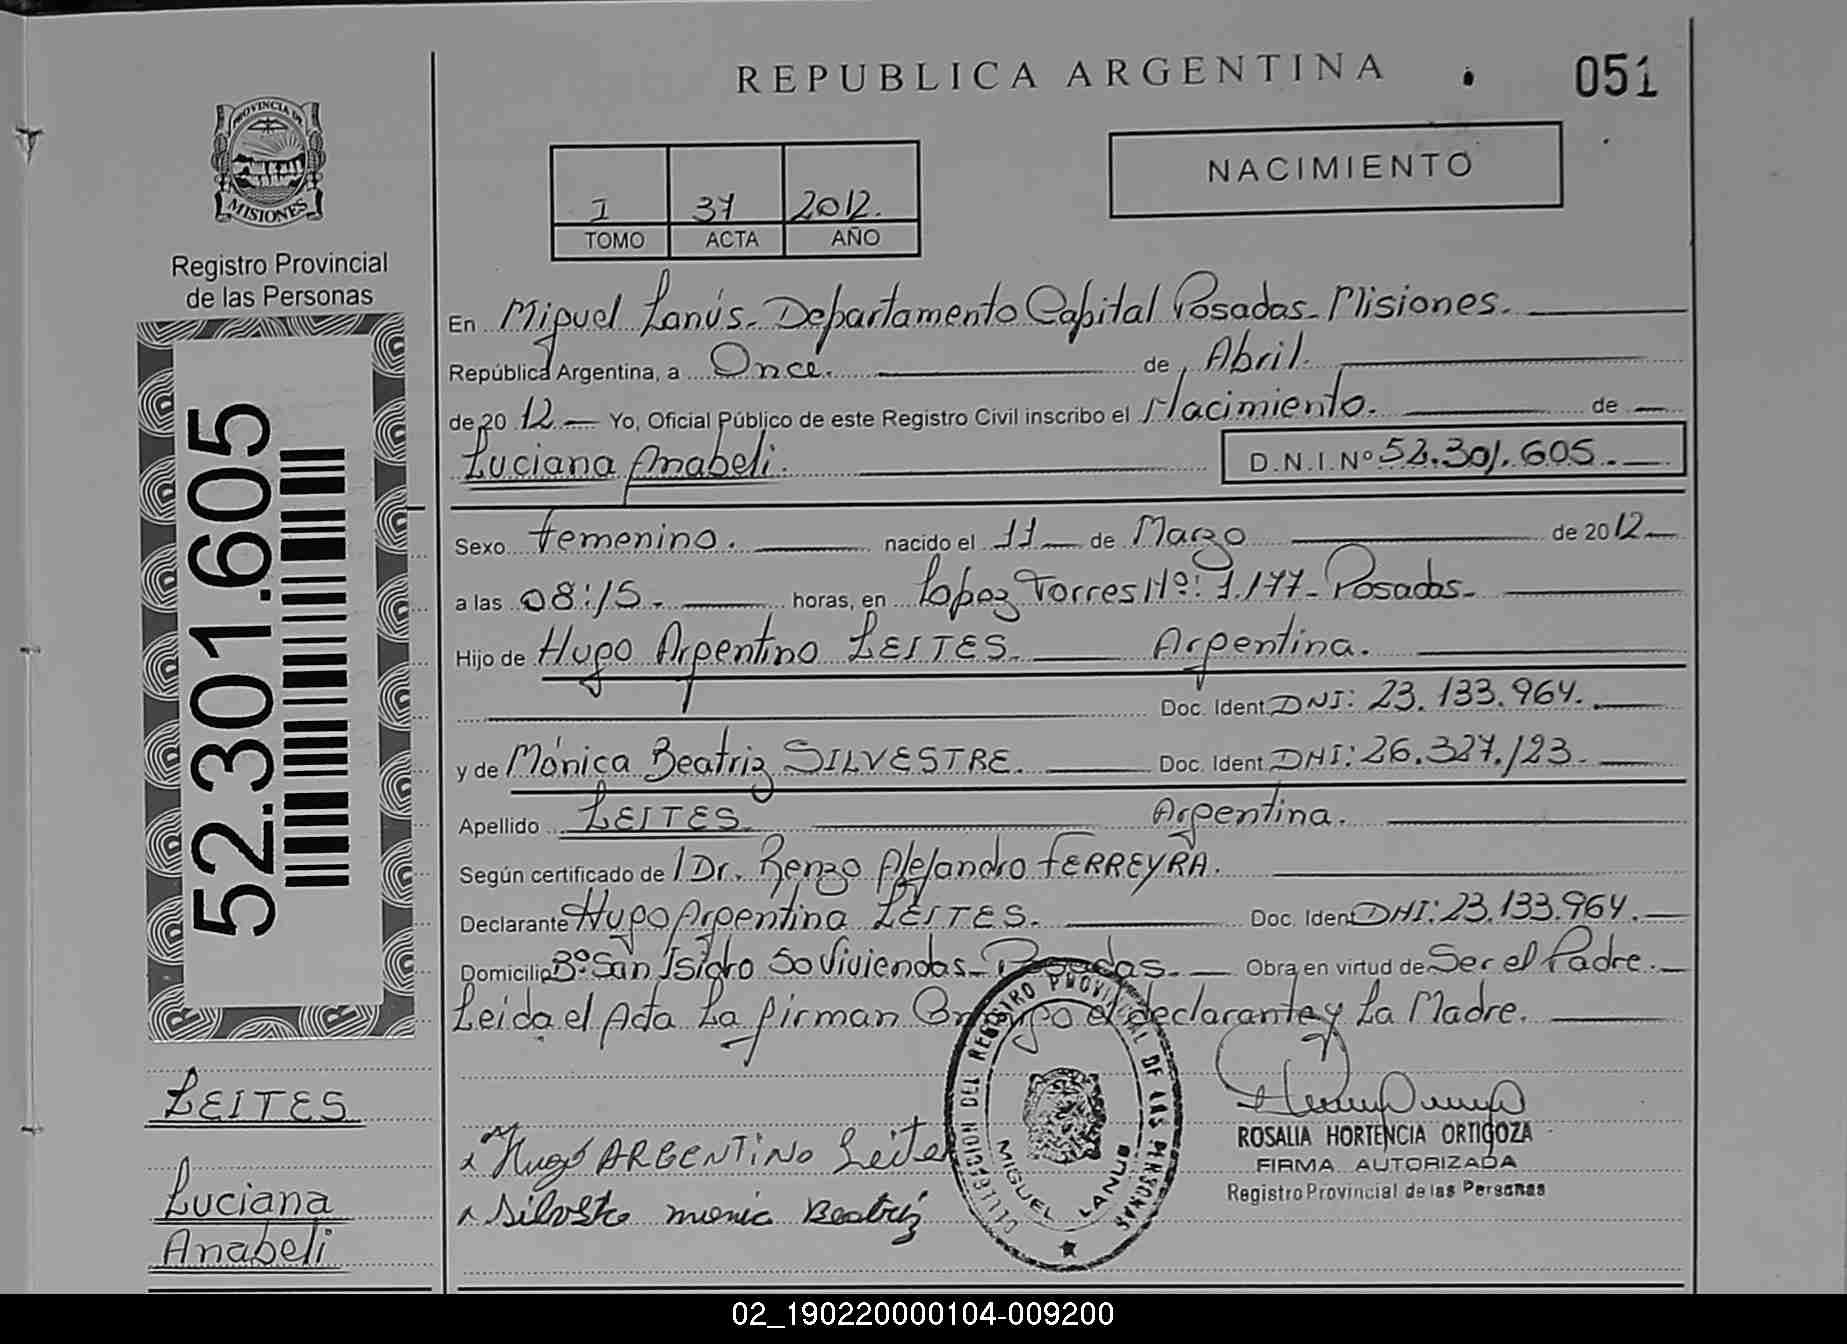 REPUBLICA ARGENTINA
051
PROVINCIA DE
MISIONES
Registro Provincial
de las Personas
NACIMIENTO
I 37 2012.
TOMO ACTA AÑO
En Miguel Lanús. Departamento Capital Posadas - Misiones.
República Argentina, a Once. de Abril.
de 20 12 Yo, Oficial Público de este Registro Civil inscribo el Nacimiento. de
Luciana Anabeli. D.N.I.Nº 52.301.605.
Sexo femenino. nacido el 11 de Marzo de 2012
a las 08:15. horas, en Lopez Torres Nº: 1.177 - Posadas.
Hijo de Hugo Argentino LEITES. Argentina.
Doc. Ident. DNI: 23.133.964.
y de Mónica Beatriz SILVESTRE. Doc. Ident. DNI: 26.327.123.
Apellido LEITES. Argentina.
Según certificado de Dr. Renzo Alejandro FERREYRA.
Declarante Hugo Argentino LEITES. Doc. Ident DNI: 23.133.964.
Domicilio Bº San Isidro 50 Viviendas - Posadas. Obra en virtud de Ser el Padre.
Leida el Acta La firman Conmigo el declarante y La Madre.
52.301.605
LEITES
Luciana
Anabeli
Hugo ARGENTINO Leites
Silvestre monic Beatriz
DELEGACION DEL REGISTRO PROVINCIAL DE LAS PERSONAS
MIGUEL LANUS
ROSALIA HORTENCIA ORTIGOZA
FIRMA AUTORIZADA
Registro Provincial de las Personas
02_190220000104-009200